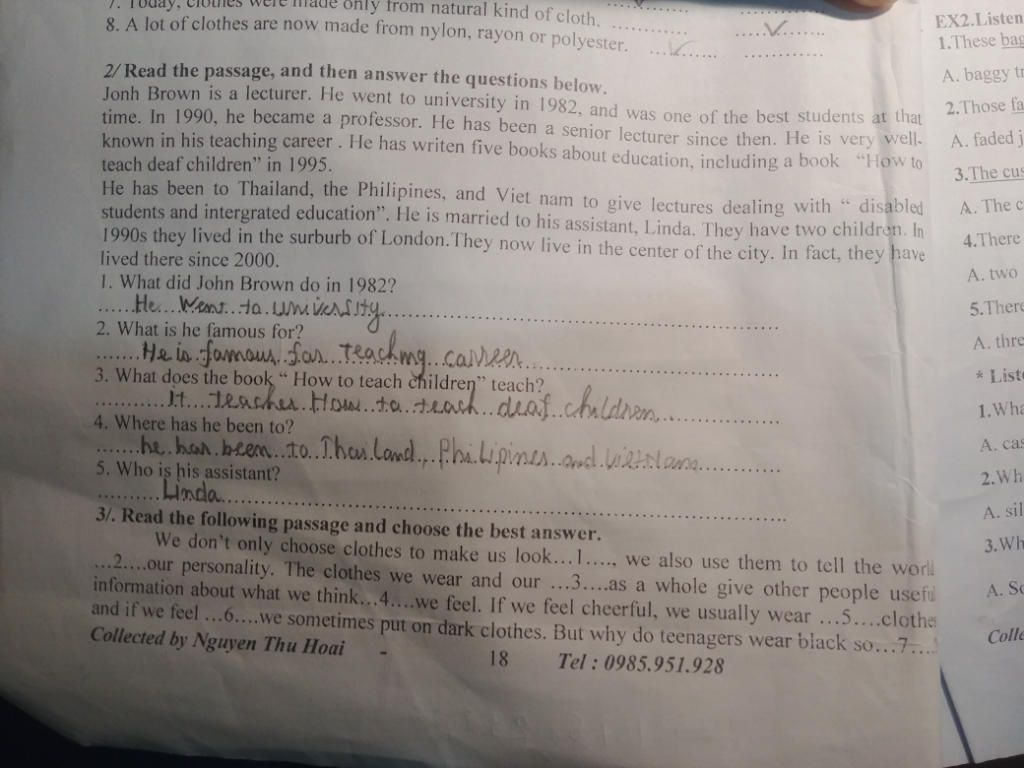 7. Today, clothes were made only from natural kind of cloth. ............
8. A lot of clothes are now made from nylon, rayon or polyester. .... ✓ ....
2/ Read the passage, and then answer the questions below.
Jonh Brown is a lecturer. He went to university in 1982, and was one of the best students at that
time. In 1990, he became a professor. He has been a senior lecturer since then. He is very well-
known in his teaching career . He has writen five books about education, including a book "How to
teach deaf children" in 1995.
He has been to Thailand, the Philipines, and Viet nam to give lectures dealing with " disabled
students and intergrated education". He is married to his assistant, Linda. They have two children. In
1990s they lived in the surburb of London.They now live in the center of the city. In fact, they have
lived there since 2000.
1. What did John Brown do in 1982?
He Went to university
2. What is he famous for?
He is famous for Teaching carreer
3. What does the book " How to teach children" teach?
It teaches How to teach deaf children
4. Where has he been to?
he has been to Thailand, Philipines and VietNam
5. Who is his assistant?
Linda
3/. Read the following passage and choose the best answer.
We don't only choose clothes to make us look...1...., we also use them to tell the world
...2....our personality. The clothes we wear and our ...3....as a whole give other people useful
information about what we think...4....we feel. If we feel cheerful, we usually wear ...5....clothes
and if we feel ...6....we sometimes put on dark clothes. But why do teenagers wear black so...7...
Collected by Nguyen Thu Hoai - 18 Tel : 0985.951.928
EX2.Listen
1.These bag
A. baggy tr
2.Those fa
A. faded j
3.The cus
A. The c
4.There
A. two
5.There
A. thre
* Liste
1.Wha
A. cas
2.Wh
A. sil
3.Wh
A. So
Colle